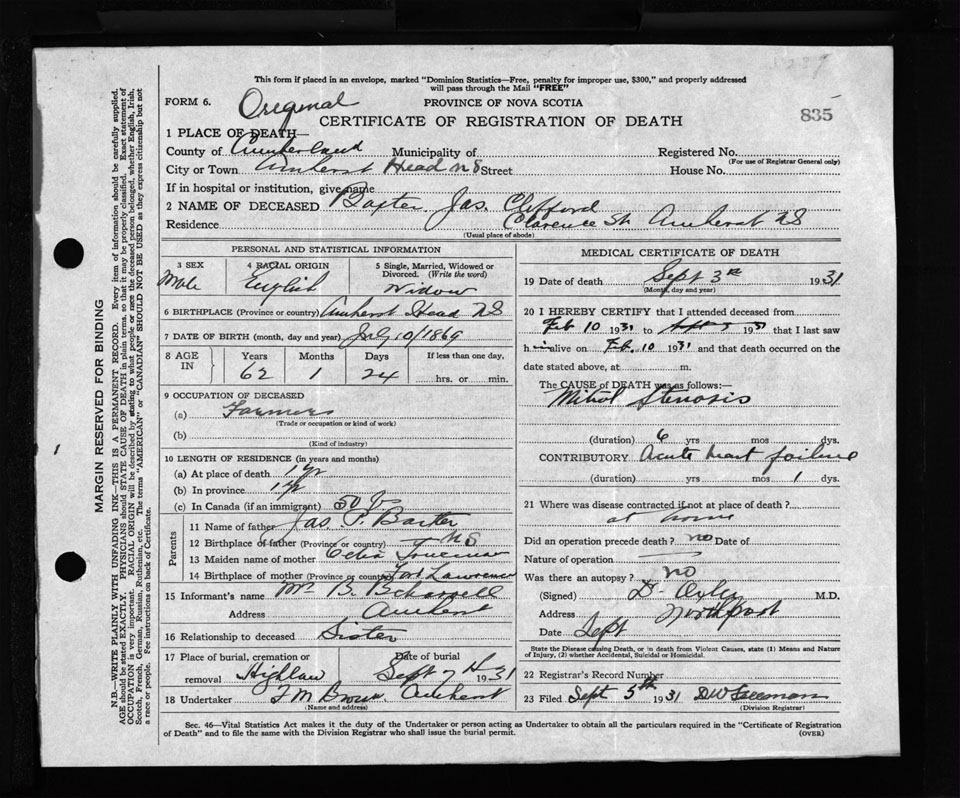 This form if placed in an envelope, marked "Dominion Statistics—Free, penalty for improper use, $300," and properly addressed
will pass through the Mail "FREE"
FORM 6. Original PROVINCE OF NOVA SCOTIA
CERTIFICATE OF REGISTRATION OF DEATH 835
1 PLACE OF DEATH—
County of Cumberland Municipality of Registered No.
(For use of Registrar General only)
City or Town Amherst Head NS Street House No.
If in hospital or institution, give name
2 NAME OF DECEASED Baxter Jas. Clifford
Residence Clarence St. Amherst NS
(Usual place of abode)
PERSONAL AND STATISTICAL INFORMATION
3 SEX 4 RACIAL ORIGIN 5 Single, Married, Widowed or
Divorced. (Write the word)
Male English Widow
6 BIRTHPLACE (Province or country) Amherst Head NS
7 DATE OF BIRTH (month, day and year) July 10/1869
8 AGE IN Years Months Days If less than one day,
62 1 24 hrs. or min.
9 OCCUPATION OF DECEASED
(a) Farmers
(Trade or occupation or kind of work)
(b)
(Kind of industry)
10 LENGTH OF RESIDENCE (in years and months)
(a) At place of death 1 yr
(b) In province 1 yr
(c) In Canada (if an immigrant) 50 y
Parents
11 Name of father Jas. P. Baxter
12 Birthplace of father (Province or country) NS
13 Maiden name of mother Trueman
14 Birthplace of mother (Province or country) Fort Lawrence
15 Informant's name Mr B.
Address Amherst
16 Relationship to deceased Sister
17 Place of burial, cremation or Date of burial
removal Highlaw Sept 1931
18 Undertaker F M Brown Amherst
(Name and address)
MEDICAL CERTIFICATE OF DEATH
19 Date of death Sept 3rd 1931
(Month, day and year)
20 I HEREBY CERTIFY that I attended deceased from
Feb 10 1931 to Sept 1931 that I last saw
him alive on Feb. 10 1931 and that death occurred on the
date stated above, at m.
The CAUSE of DEATH was as follows:—
Mitral Stenosis
(duration) 6 yrs mos dys.
CONTRIBUTORY Acute heart failure
(duration) yrs mos 1 dys.
21 Where was disease contracted if not at place of death?
at home
Did an operation precede death? no Date of
Nature of operation
Was there an autopsy? no
(Signed) D. M.D.
Address Northport
Date Sept
State the Disease causing Death, or in death from Violent Causes, state (1) Means and Nature
of Injury, (2) whether Accidental, Suicidal or Homicidal.
22 Registrar's Record Number
23 Filed Sept 5th 1931 DW Freeman
(Division Registrar)
Sec. 46—Vital Statistics Act makes it the duty of the Undertaker or person acting as Undertaker to obtain all the particulars required in the "Certificate of Registration
of Death" and to file the same with the Division Registrar who shall issue the burial permit. (OVER)
MARGIN RESERVED FOR BINDING
N.B.—WRITE PLAINLY WITH UNFADING INK—THIS IS A PERMANENT RECORD. Every item of information should be carefully supplied.
AGE should be stated EXACTLY. PHYSICIANS should STATE CAUSE OF DEATH in plain terms, so that it may be properly classified. Exact statement of
OCCUPATION is very important. RACIAL ORIGIN will be described by stating to what people or race the deceased person belonged, whether English, Irish,
Scotch, French, German, Russian, Ruthenian, etc. The terms "AMERICAN" or "CANADIAN" SHOULD NOT BE USED as they express citizenship but not
a race or people. See instructions on back of Certificate.